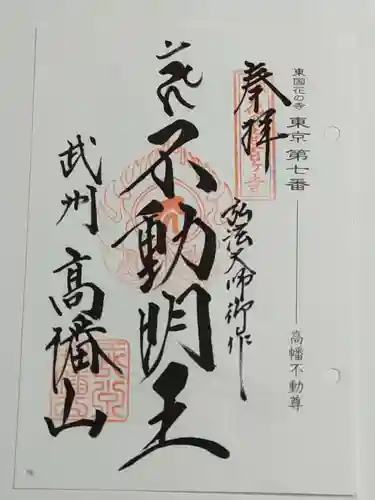 東国花の寺 東京 第七番 高幡不動尊
奉拝
弘法大師御作
不動明王
武州 高幡山